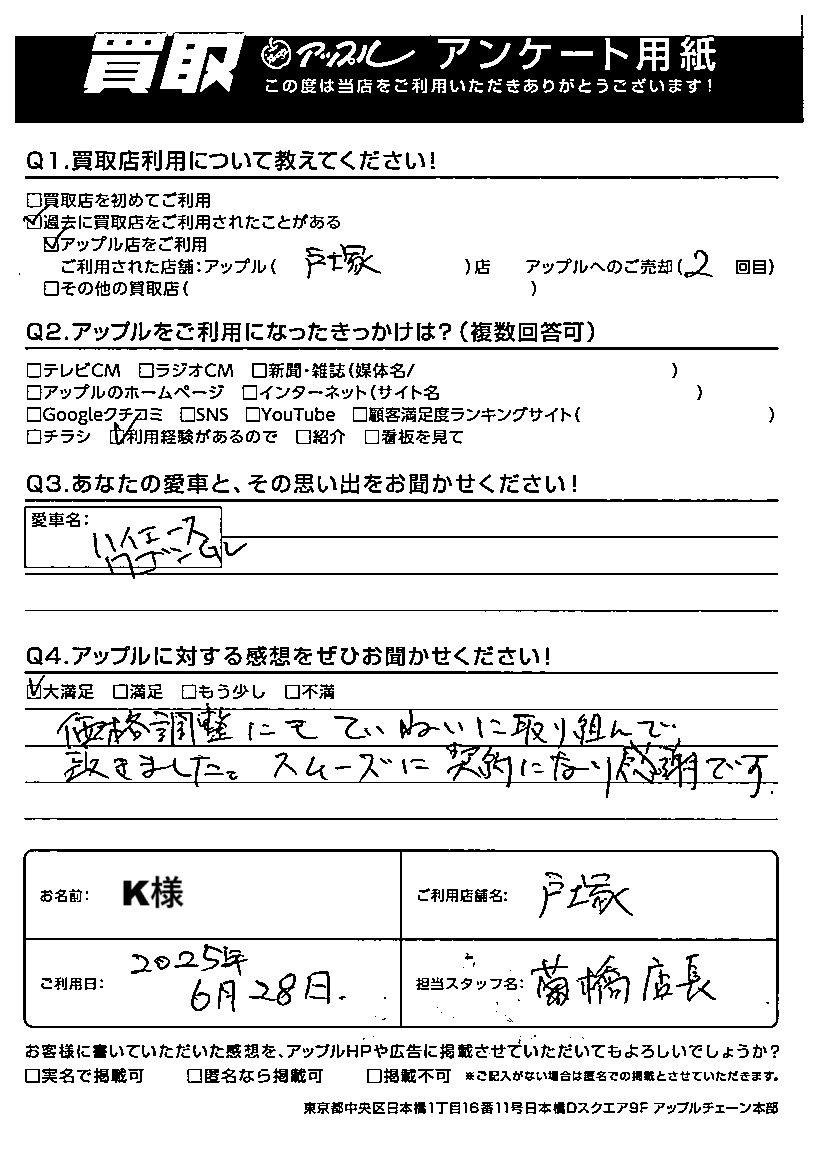 買取 アップル アンケート用紙
この度は当店をご利用いただきありがとうございます!
Q1.買取店利用について教えてください!
□買取店を初めてご利用
☑過去に買取店をご利用されたことがある
☑アップル店をご利用
ご利用された店舗:アップル( 戸塚 )店 アップルへのご売却( 2 回目)
□その他の買取店( )
Q2.アップルをご利用になったきっかけは?(複数回答可)
□テレビCM □ラジオCM □新聞・雑誌(媒体名/ )
□アップルのホームページ □インターネット(サイト名 )
□Googleクチコミ □SNS □YouTube □顧客満足度ランキングサイト( )
□チラシ ☑利用経験があるので □紹介 □看板を見て
Q3.あなたの愛車と、その思い出をお聞かせください!
愛車名: ハイエース
ワゴンGL
Q4.アップルに対する感想をぜひお聞かせください!
☑大満足 □満足 □もう少し □不満
価格調整にもていねいに取り組んで
頂きました。スムーズに契約になり感謝です.
お名前: K様 ご利用店舗名: 戸塚
ご利用日: 2025年
6月28日. 担当スタッフ名: 橋店長
お客様に書いていただいた感想を、アップルHPや広告に掲載させていただいてもよろしいでしょうか?
□実名で掲載可 □匿名なら掲載可 □掲載不可 ※ご記入がない場合は匿名での掲載とさせていただきます。
東京都中央区日本橋1丁目16番11号日本橋Dスクエア9F アップルチェーン本部